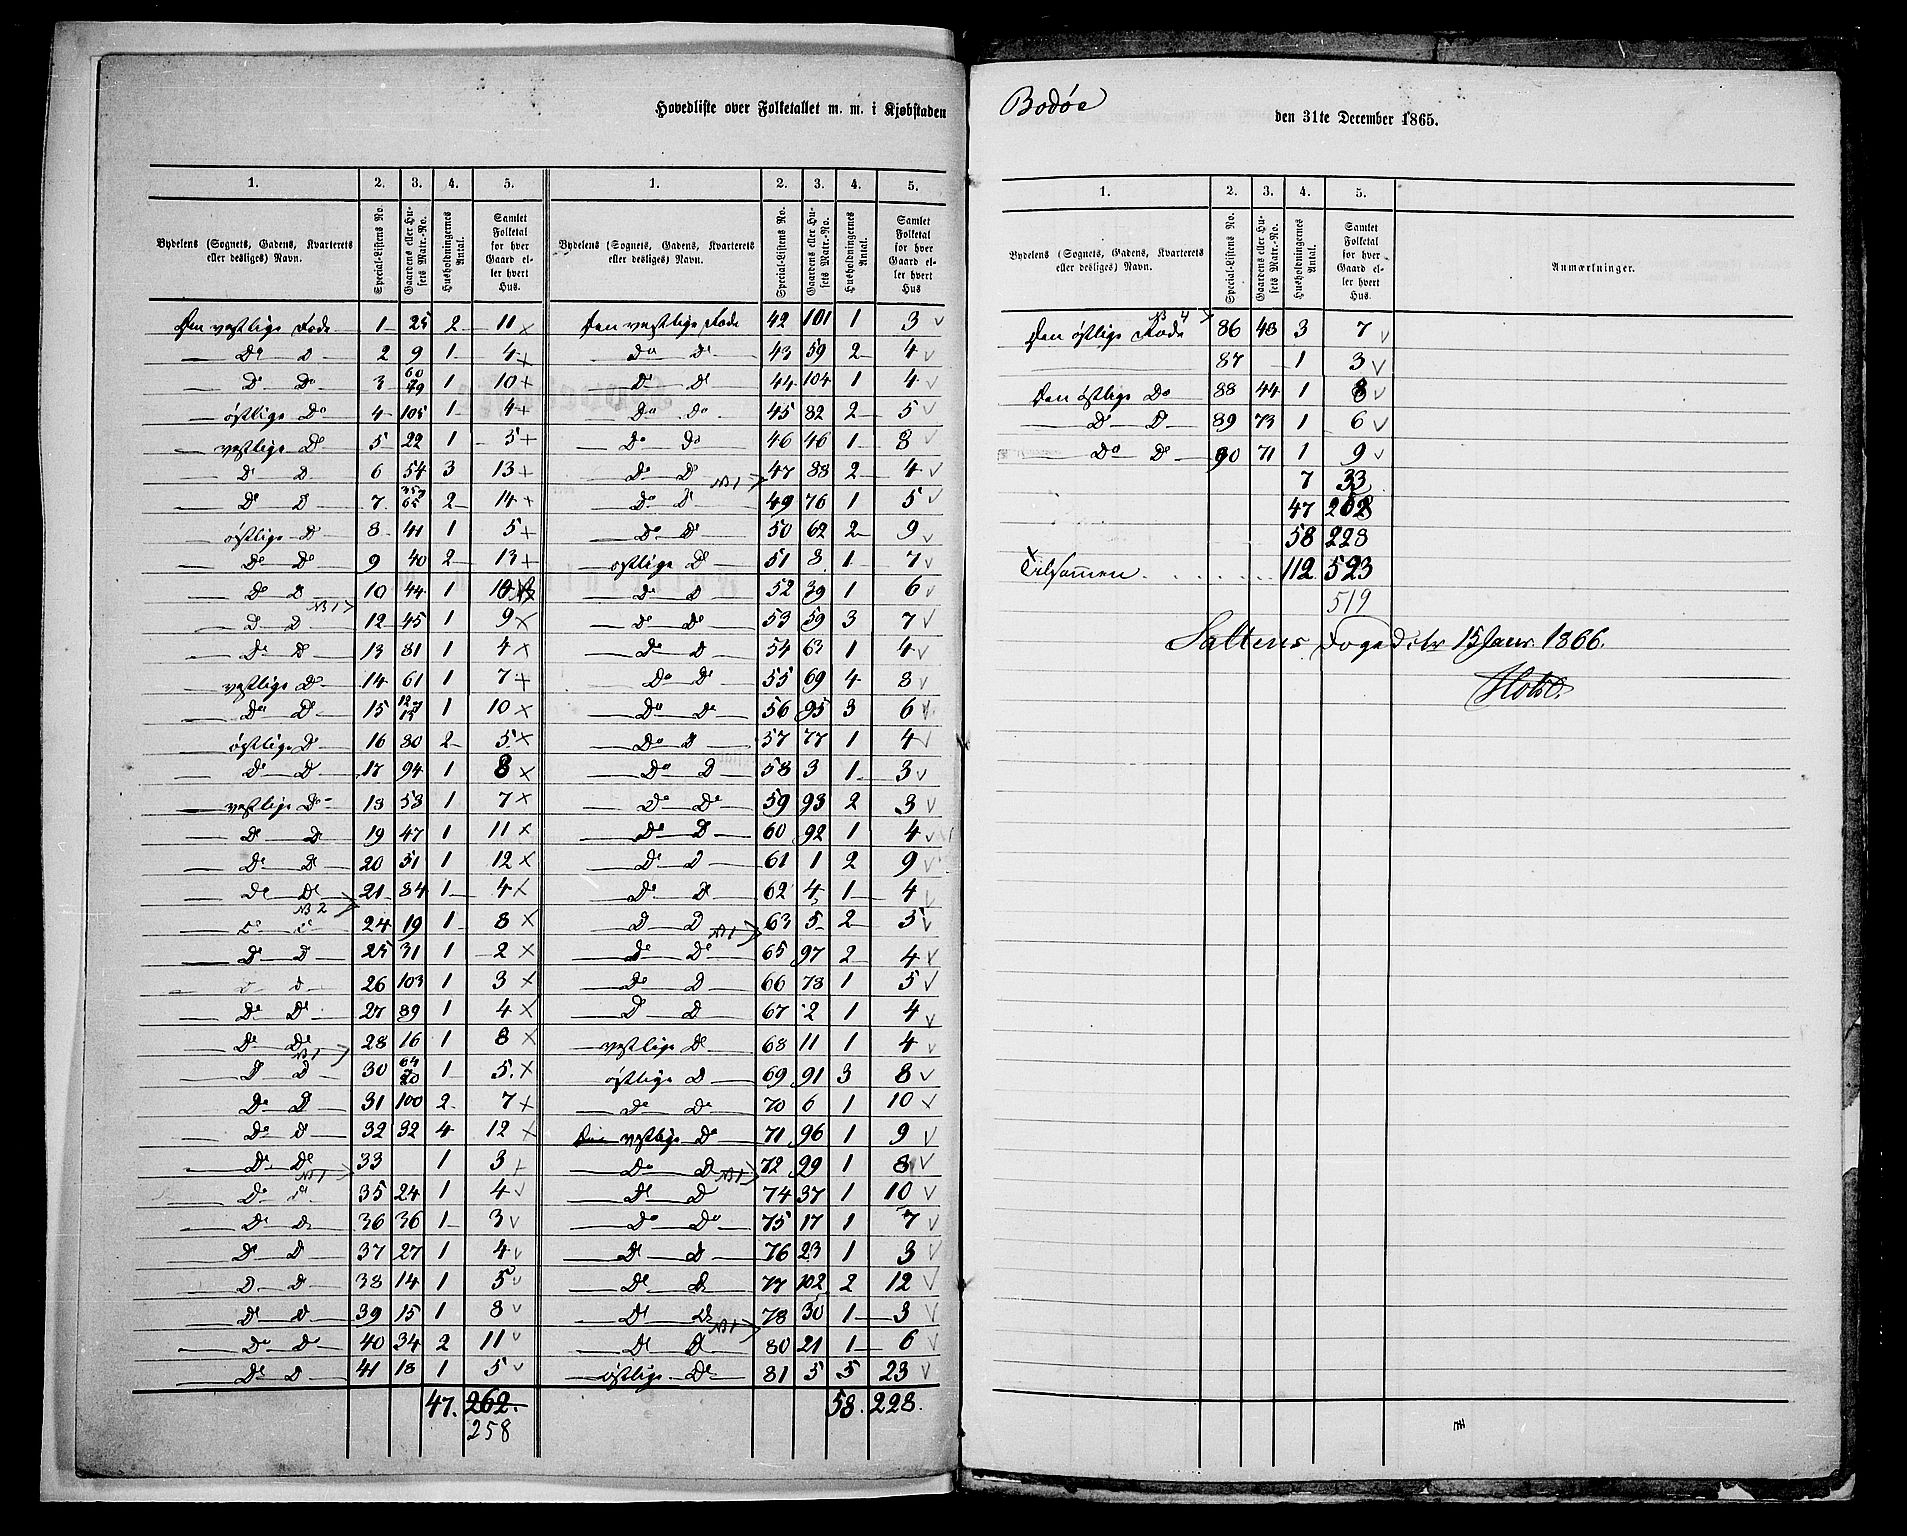 Hovedliste over Folketallet m. m. i Kjøbstaden Bodøe den 31te December 1865.
1. 2. 3. 4. 5. 1. 2. 3. 4. 5.
Bydelens (Sognets, Gadens, Kvarterets eller desliges) Navn. Special-Listens No. Gaardens eller Husets Matr.-No. Husholdningernes Antal. Samlet Folketal for hver Gaard eller hvert Hus.
Bydelens (Sognets, Gadens, Kvarterets eller desliges) Navn. Special-Listens No. Gaardens eller Husets Matr.-No. Husholdningernes Antal. Samlet Folketal for hver Gaard eller hvert Hus
Den vestlige Rode 1 25 2 11 x
Do D 2 9 1 4 +
Do Do 3 60 79 1 10 +
østlige Do 4 105 1 4 +
vestlige Do 5 22 1 5 +
D D 6 54 3 13 +
Do D 7 65 2 14 +
østlige D 8 41 1 5 +
Do Do 9 40 2 13 +
Do D 10 44 1
N 1
D D 12 45 1 9 x
Do D 13 81 1 4 x
vestlige D 14 61 1 7 +
Do D 15 1 10 x
østlige D 16 80 2 5 x
Do D 17 94 1 8 x
vestlige Do 18 58 1 7 x
D D 19 47 1 11 x
Do D 20 51 1 12 x
Do Do 21 84 1 4 x
N 2
24 19 1 8 x
D D 25 31 1 2 x
26 103 1 3 x
Do Do 27 89 1 4 x
Do Do 28 16 1 8 x
N 1
D D 30 64 20 1 5. x
Do D 31 100 2 7 x
Do D 32 32 4 12 x
Do Do 33 1 3 +
N 1
Do 35 24 1 4 v
Do D 36 36 1 3 v
D D 37 27 1 4 v
D D 38 14 1 5 v
D D 39 15 1 8 v
Do Do 40 34 2 11 v
Do D 41 18 1 5 v
47. 262.
258
Den vestlige Rode 42 101 1 3 v
Do Do 43 59 2 4 v
D D 44 104 1 4 v
Do Do 45 82 2 5 v
Do Do 46 46 1 8 v
Do D 47 88 2 4 v
N 1
Do D 49 76 1 5 v
Do D 50 62 2 9 v
østlige D 51 8 1 7 v
Do D 52 39 1 6 v
D Do 53 59 3 7 v
Do D 54 63 1 4 v
Do Do 55 69 4 8 v
Do D 56 95 3 6 v
Do D 57 77 1 4 v
Do D 58 3 1 3 v
Do Do 59 93 2 3 v
Do D 60 92 1 4 v
Do D 61 1 2 9 v
Do D 62 4 1 4 v
D D 63 5 2 5 v
N 1
D Do 65 97 2 4 v
Do D 66 78 1 5 v
D D 67 2 1 4 v
vestlige D 68 11 1 4 v
østlige D 69 91 3 8 v
Do Do 70 6 1 10 v
Den vestlige Do 71 96 1 9 v
Do D 72 99 1 8 v
N 1
D D 74 37 1 10 v
Do Do 75 17 1 7 v
D D 76 23 1 3 v
D D 77 102 2 12 v
D D 78 30 1 3 v
N 1
D D 80 21 1 6 v
østlige Do 81 5 5 23 v
58. 228.
1. 2. 3. 4. 5.
Bydelens (Sognets, Gadens, Kvarterets eller desliges) Navn. Special-Listens No. Gaardens eller Husets Matr.-No. Husholdningernes Antal. Samlet Folketal for hver Gaard eller hvert Hus. Anmærkninger.
N 4
Den østlige Rode 86 48 3 7 v
87 1 3 v
Den østlige Do 88 44 1 8 v
D D 89 73 1 6 v
Do D 90 71 1 9 v
7 33
47 262
58 228
Tilsammen 112 523
519
Saltens Fogderi 15 Janr 1866.